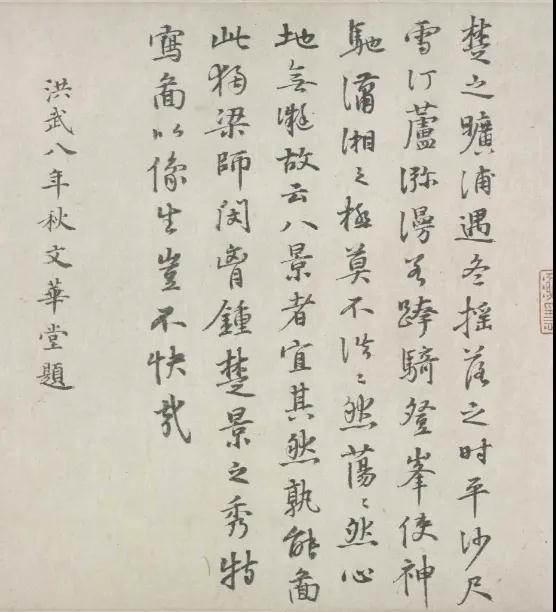 楚之曠浦遇冬搖落之时平沙尺
雪汀蘆㳽漫若跨騎登峯使神
馳瀟湘之極莫不浩〻然蕩〻然心
地無凝故云八景者宜其然孰能圖
此獨梁師閔胷鍾楚景之秀特
寫圖以像生豈不快哉
洪武八年秋文華堂題